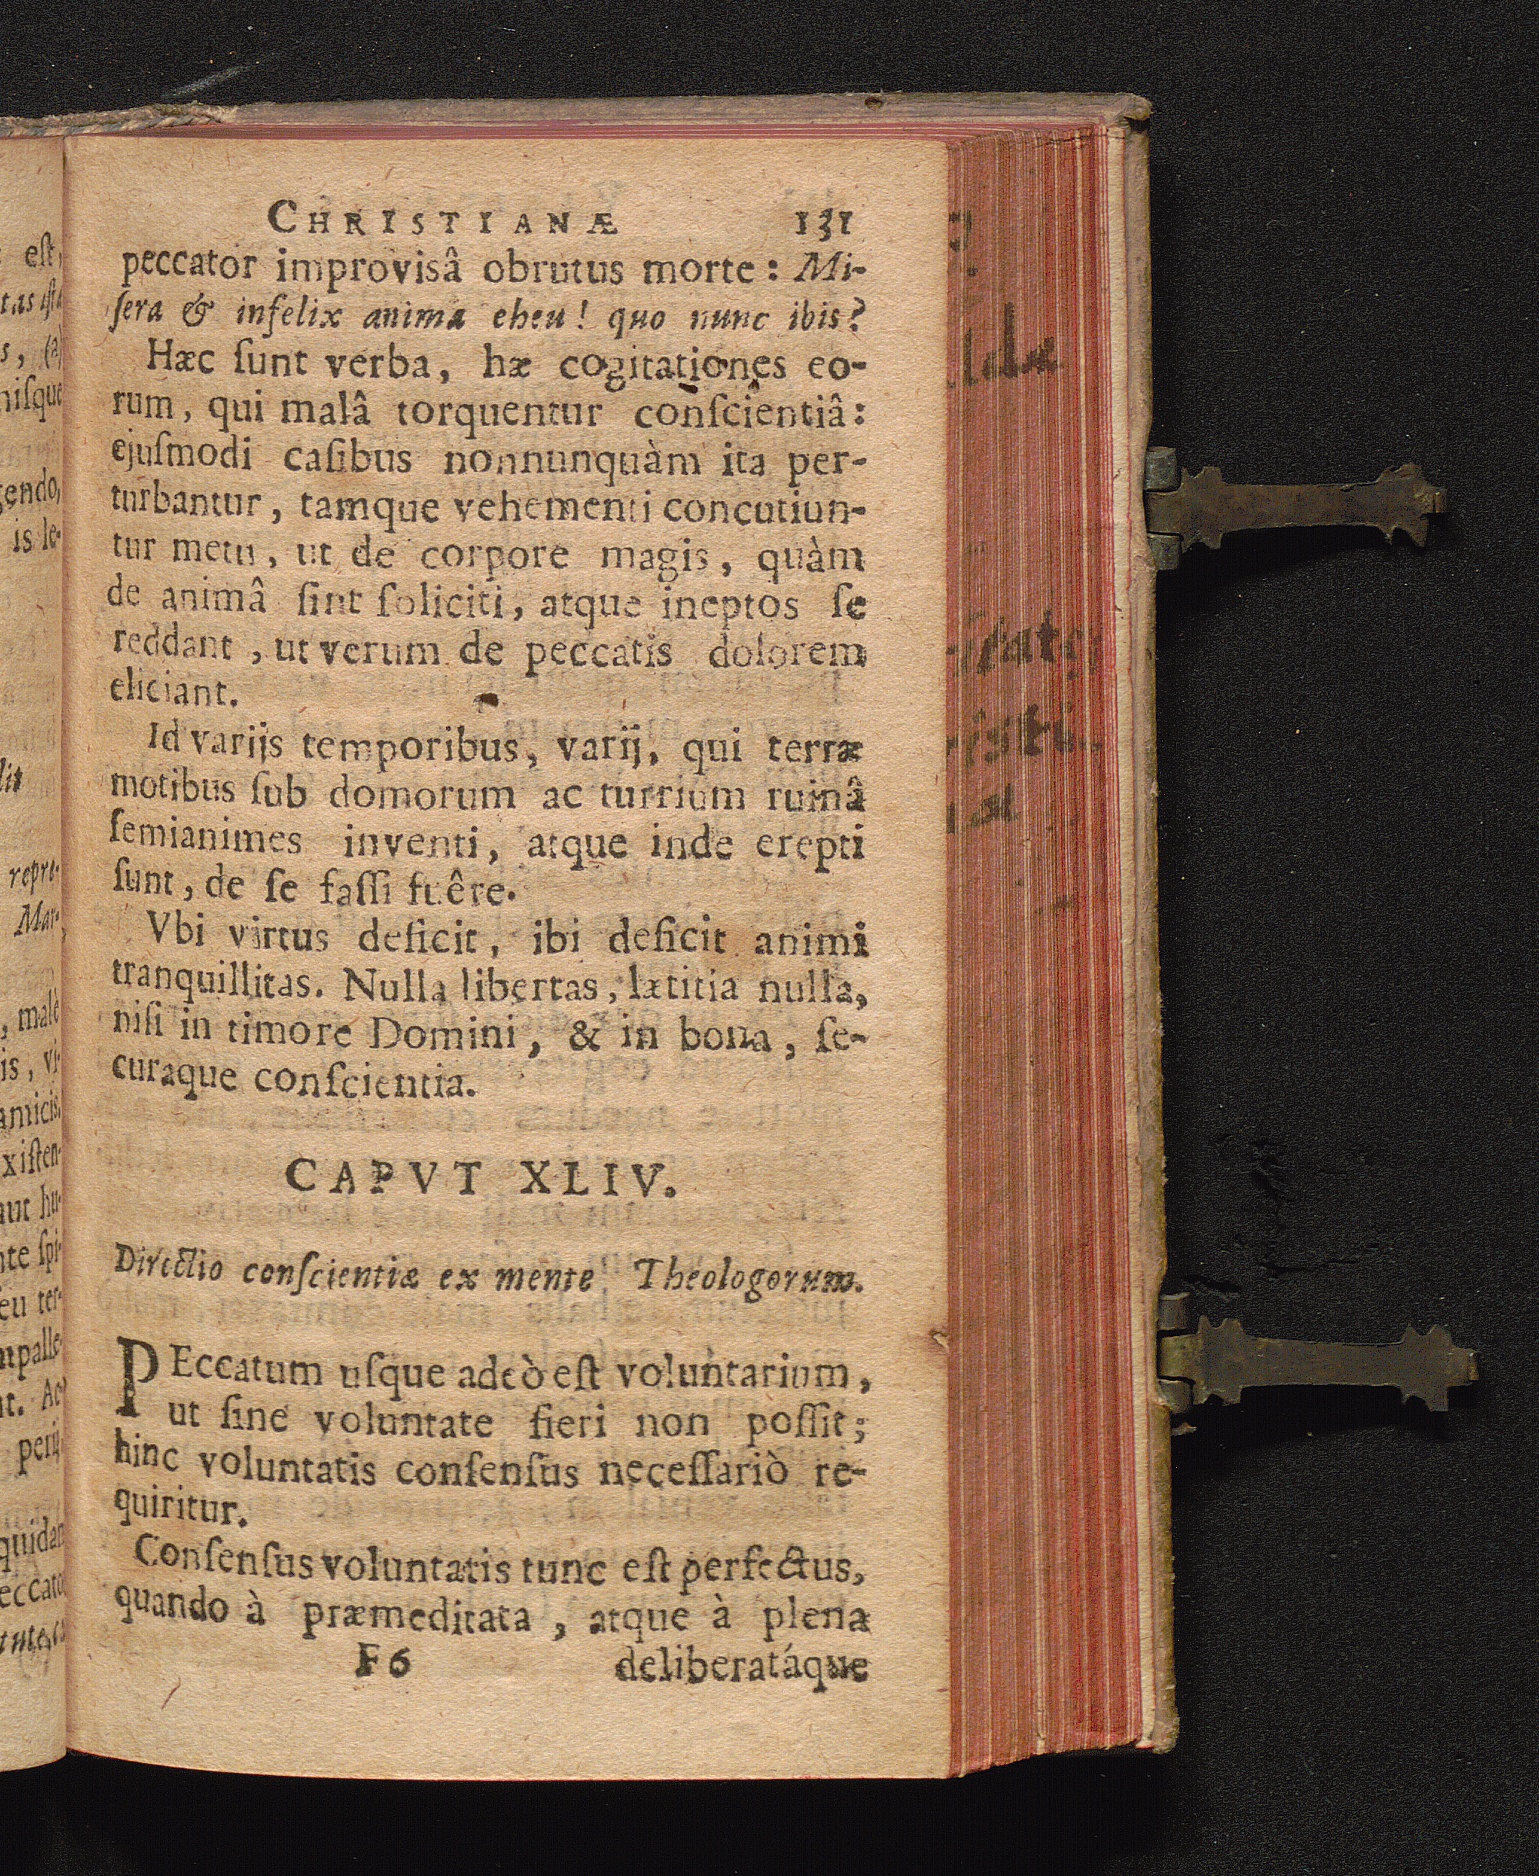 CHRISTIANÆ 131
peccator improvisâ obrutus morte: Mi-
ſera & infelix anima eheu! quo nunc ibis?
Hæc ſunt verba, hæ cogitationes eo-
rum, qui malâ torquentur conſcientiâ:
ejuſmodi caſibus nonnunquàm ita per-
turbantur, tamque vehementi concutiun-
tur metu, ut de corpore magis, quàm
de animâ ſint ſoliciti, atque ineptos ſe
reddant, ut verum de peccatis dolorem
eliciant.
Id varijs temporibus, varij, qui terræ
motibus ſub domorum ac turrium ruinâ
ſemianimes inventi, atque inde erepti
ſunt, de ſe faſſi fuêre.
Vbi virtus deficit, ibi deficit animi
tranquillitas. Nulla libertas, lætitia nulla,
niſi in timore Domini, & in bona, ſe-
curaque conſcientia.
CAPVT XLIV.
Directio conſcientiæ ex mente Theologorum.
PEccatum uſque adeò eſt voluntarium,
ut ſine voluntate fieri non poſſit;
hinc voluntatis conſenſus neceſſariò re-
quiritur.
Conſenſus voluntatis tunc eſt perfectus,
quando à præmeditata, atque à plena
F6 deliberatáque